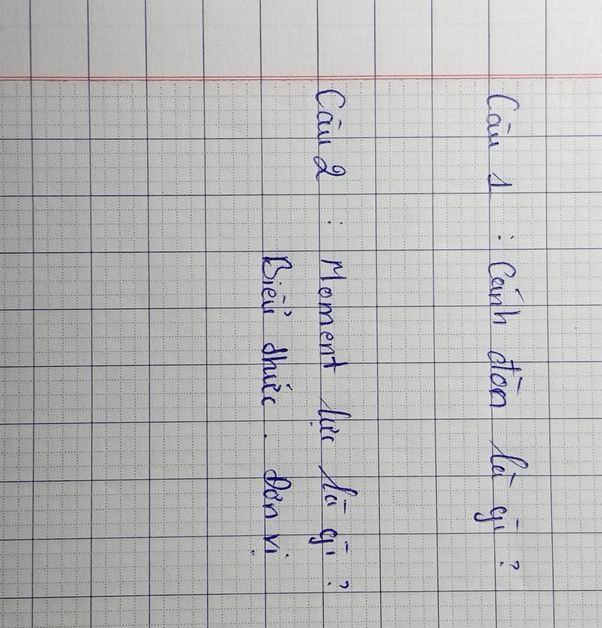 Câu 1 : Cánh đòn là gì ?
Câu 2 : Moment lực là gì ?
Biểu thức . Đơn vị